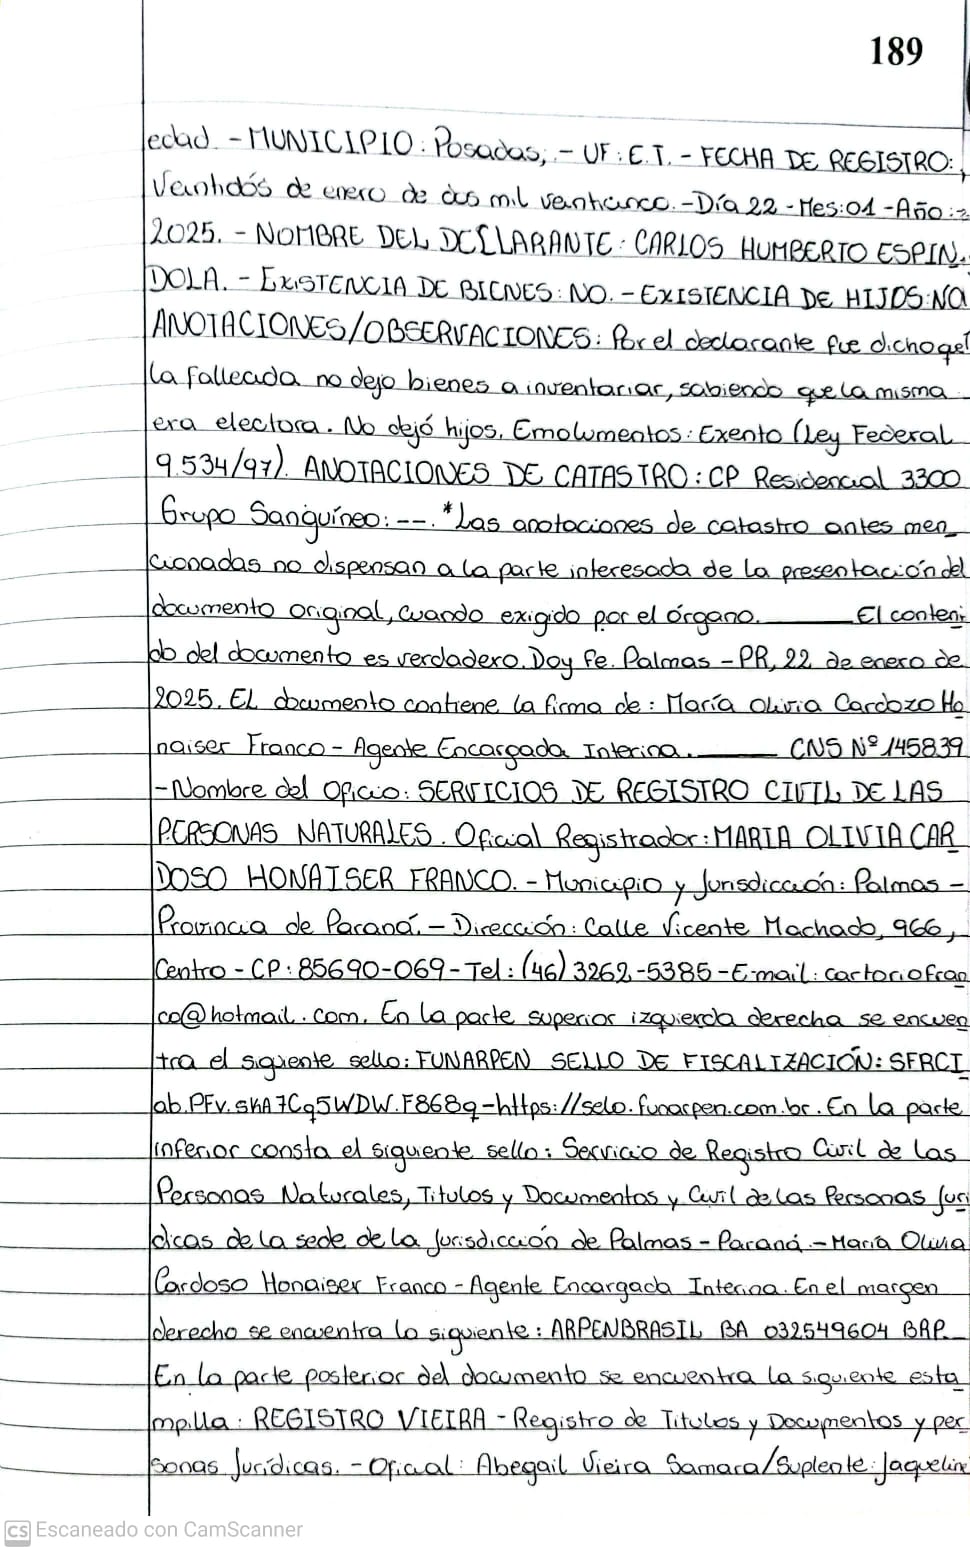 189
edad. - MUNICIPIO: Posadas, - UF: E.T. - FECHA DE REGISTRO:
Veintidós de enero de dos mil veinticinco. - Día 22 - Mes: 01 - Año:
2025. - NOMBRE DEL DECLARANTE: CARLOS HUMBERTO ESPIN
DOLA. - EXISTENCIA DE BIENES: NO. - EXISTENCIA DE HIJOS: NO
ANOTACIONES/OBSERVACIONES: Por el declarante fue dicho que
la fallecida no dejo bienes a inventariar, sabiendo que la misma
era electora. No dejó hijos. Emolumentos: Exento (Ley Federal
9.534/97). ANOTACIONES DE CATASTRO: CP Residencial 3300
Grupo Sanguíneo: --. *Las anotaciones de catastro antes men
cionadas no dispensan a la parte interesada de la presentación del
documento original, cuando exigido por el órgano. ______ El conteni
do del documento es verdadero. Doy Fe. Palmas - PR, 22 de enero de
2025. EL documento contiene la firma de: María Olivia Cardozo Ho
naiser Franco - Agente Encargada Interina. ______ CNS Nº 145839
- Nombre del Oficio: SERVICIOS DE REGISTRO CIVIL DE LAS
PERSONAS NATURALES. Oficial Registrador: MARIA OLIVIA CAR
DOSO HONAISER FRANCO. - Municipio y Jurisdicción: Palmas -
Provincia de Paraná. - Dirección: Calle Vicente Machado, 966,
Centro - CP: 85690-069 - Tel: (46) 3262-5385 - E-mail: cartoriofran
co@hotmail.com. En la parte superior izquierda derecha se encuen
tra el siguiente sello: FUNARPEN SELLO DE FISCALIZACIÓN: SFRCI
ab.PFv.sKA7Cq5WDW.F868q - https://selo.funarpen.com.br. En la parte
inferior consta el siguiente sello: Servicio de Registro Civil de las
Personas Naturales, Titulos y Documentos y Civil de las Personas Jurí
dicas de la sede de la Jurisdicción de Palmas - Paraná - María Olivia
Cardoso Honaiser Franco - Agente Encargada Interina. En el margen
derecho se encuentra lo siguiente: ARPENBRASIL BA 032549604 BRP.
En la parte posterior del documento se encuentra la siguiente esta
mpilla: REGISTRO VIEIRA - Registro de Titulos y Documentos y per
sonas Jurídicas. - Oficial: Abegail Vieira Samara/Suplente: Jaqueline
CS Escaneado con CamScanner